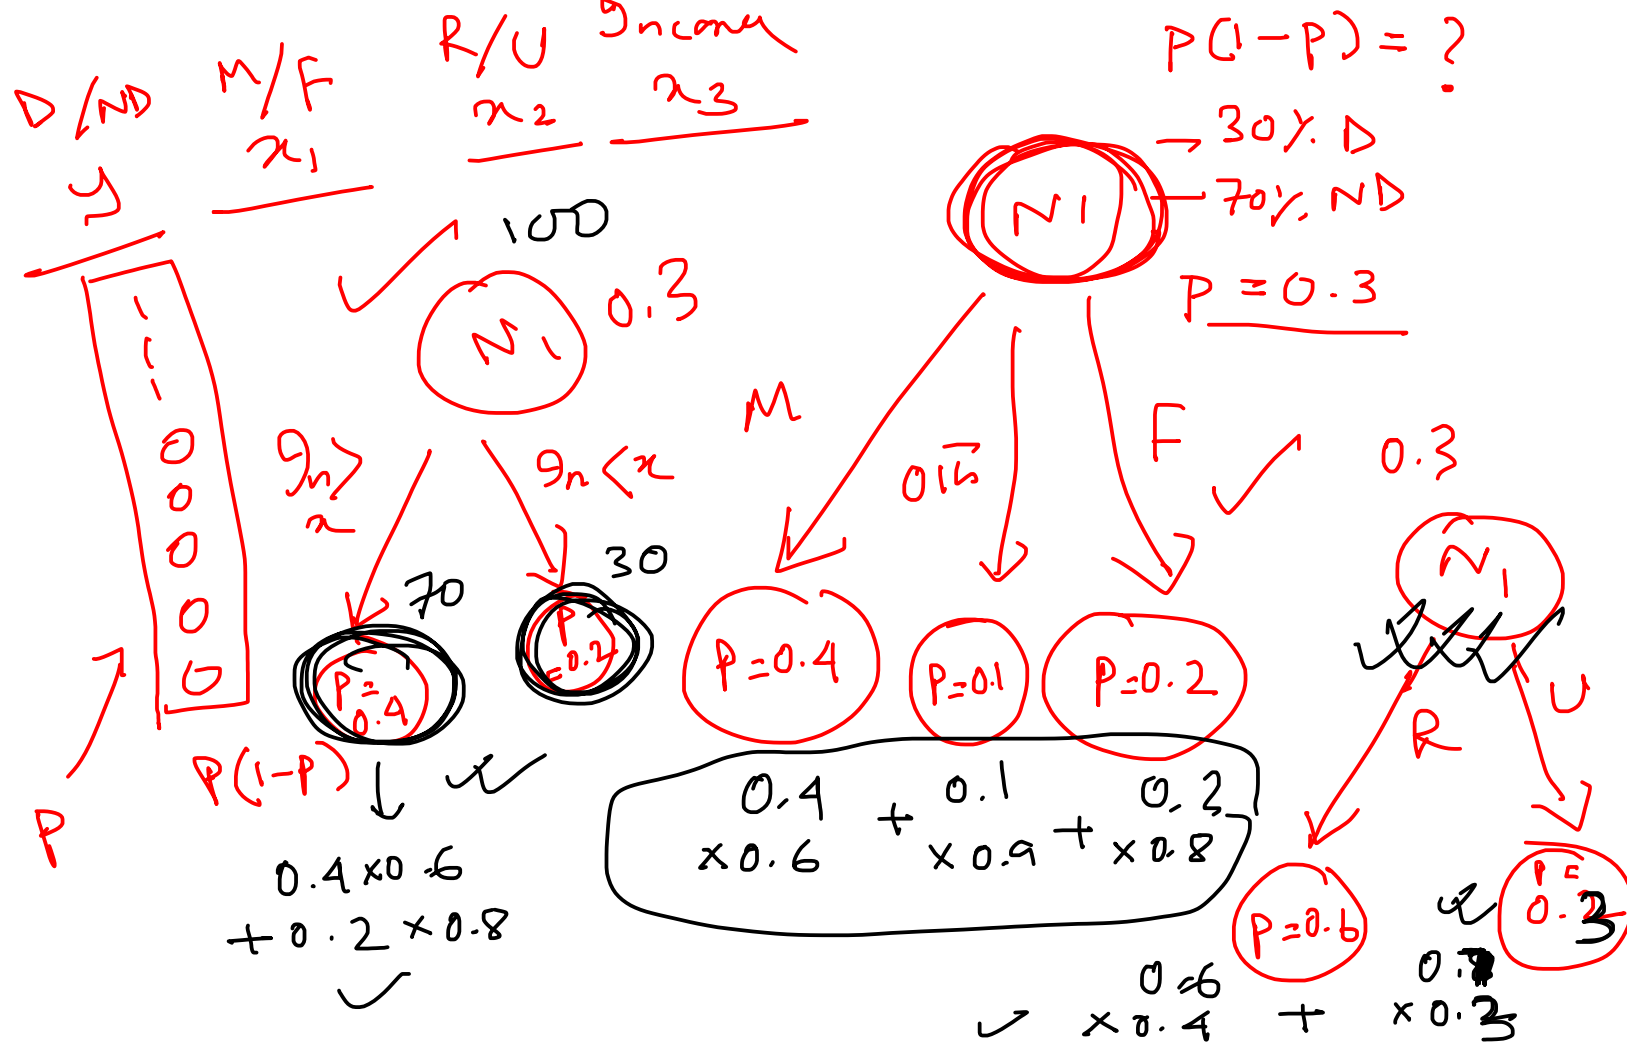 D/ND M/F R/U Income
y x1 x2 x3
1
1
1
0
0
0
0
0
P
100
N1 0.3
In > x
In < x
70
30
P = 0.4
P = 0.2
P(1-P)
0.4 x 0.6
+ 0.2 x 0.8
P(1-P) = ?
N1
30% D
70% ND
P = 0.3
M
oth
F
P=0.4
P=0.1
P=0.2
0.4 + 0.1 + 0.2
x0.6 x0.9 x0.8
0.3
N1
R
U
P=0.6
P=
0.3
0.6 + 0.7
x0.4 x0.3